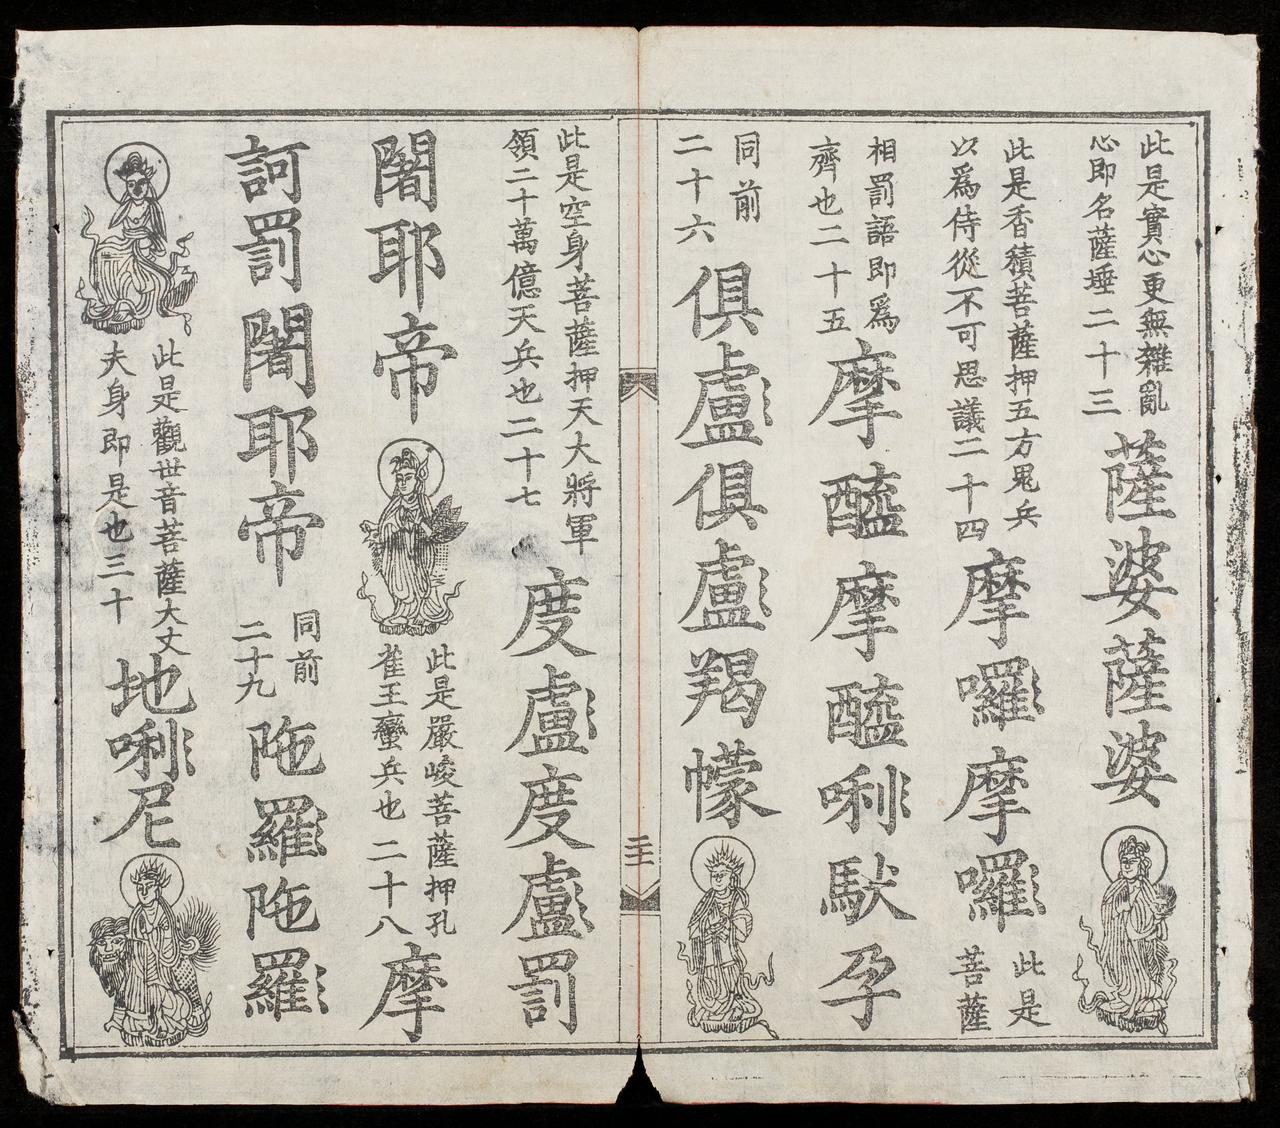 此是實心更無雜亂
心即名薩埵二十三
薩婆薩婆
此是香積菩薩押五方鬼兵
以爲侍從不可思議二十四
摩囉摩囉
此是
菩薩
相罰語即爲
齊也二十五
摩醯摩醯唎馱孕
同前
二十六
俱盧俱盧羯幪
二十一
此是空身菩薩押天大將軍
領二十萬億天兵也二十七
度盧度盧罰
闍耶帝
此是嚴峻菩薩押孔
雀王蠻兵也二十八
摩
訶罰闍耶帝
同前
二十九
陁羅陁羅
此是觀世音菩薩大丈
夫身即是也三十
地唎尼